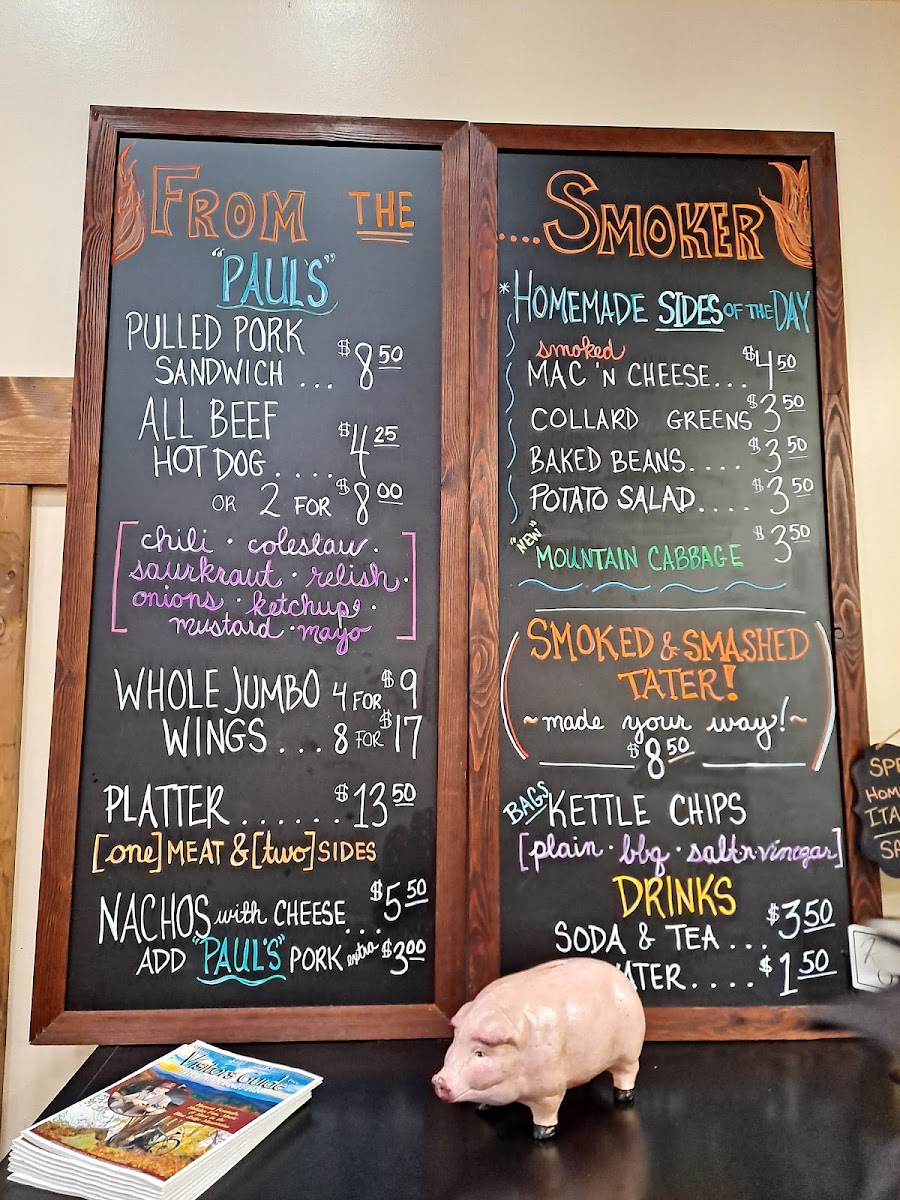 FROM THE
"PAUL'S"
PULLED PORK
SANDWICH ... $8 50
ALL BEEF
HOT DOG ..... $4 25
OR 2 FOR $8 00
[chili · coleslaw ·
saurkraut · relish ·
onions · ketchup ·
mustard · mayo]
WHOLE JUMBO 4 FOR $9
WINGS ... 8 FOR $17
PLATTER ...... $13 50
[one] MEAT & [two] SIDES
NACHOS with CHEESE ... $5 50
ADD "PAUL'S" PORK extra $3 00
....SMOKER
*HOMEMADE SIDES OF THE DAY
smoked
MAC 'N CHEESE... $4 50
COLLARD GREENS $3 50
BAKED BEANS.... $3 50
POTATO SALAD.... $3 50
"NEW" MOUNTAIN CABBAGE $3 50
SMOKED & SMASHED
TATER!
~made your way!~
$8 50
BAGS KETTLE CHIPS
[plain · bbq · salt'n·vinegar]
DRINKS
SODA & TEA ... $3 50
ATER.... $1 50
HOM
ITA
Visitor's Guide